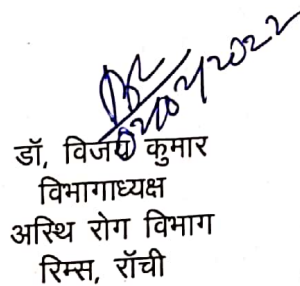 02/02/2022
डॉ, विजय कुमार
विभागाध्यक्ष
अस्थि रोग विभाग
रिम्स, रॉची